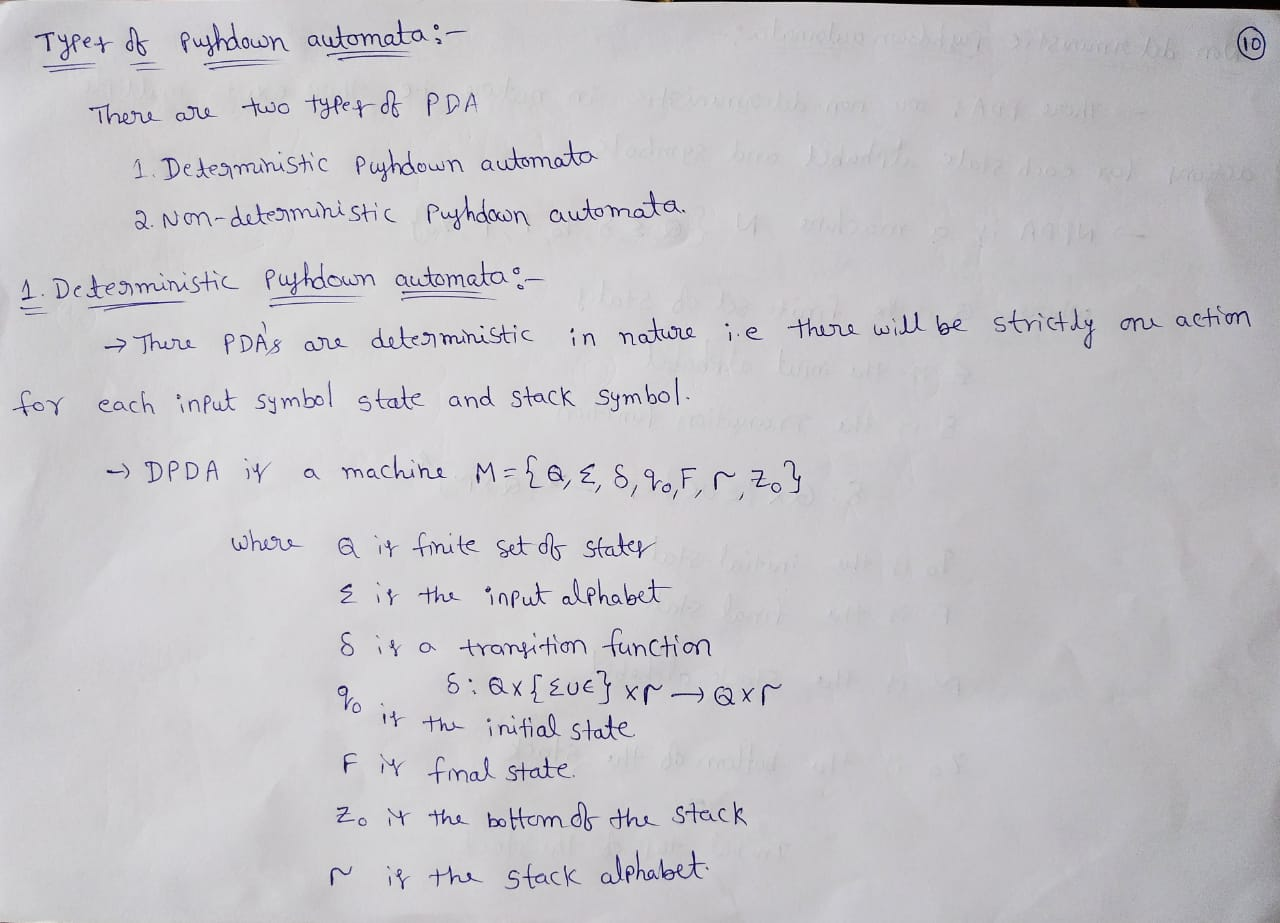 Types of Pushdown automata:-
10
There are two types of PDA
1. Deterministic Pushdown automata
2. Non-deterministic Pushdown automata.
1. Deterministic Pushdown automata:-
→ There PDA's are deterministic in nature i.e there will be strictly one action
for each input symbol state and stack symbol.
→ DPDA is a machine M={Q, Σ, δ, q0, F, Γ, Z0}
where Q is finite set of states
Σ is the input alphabet
δ is a transition function
δ: Q×{Σ∪ϵ}×Γ→Q×Γ
q0 is the initial state
F is final state.
Z0 is the bottom of the stack
Γ is the stack alphabet.